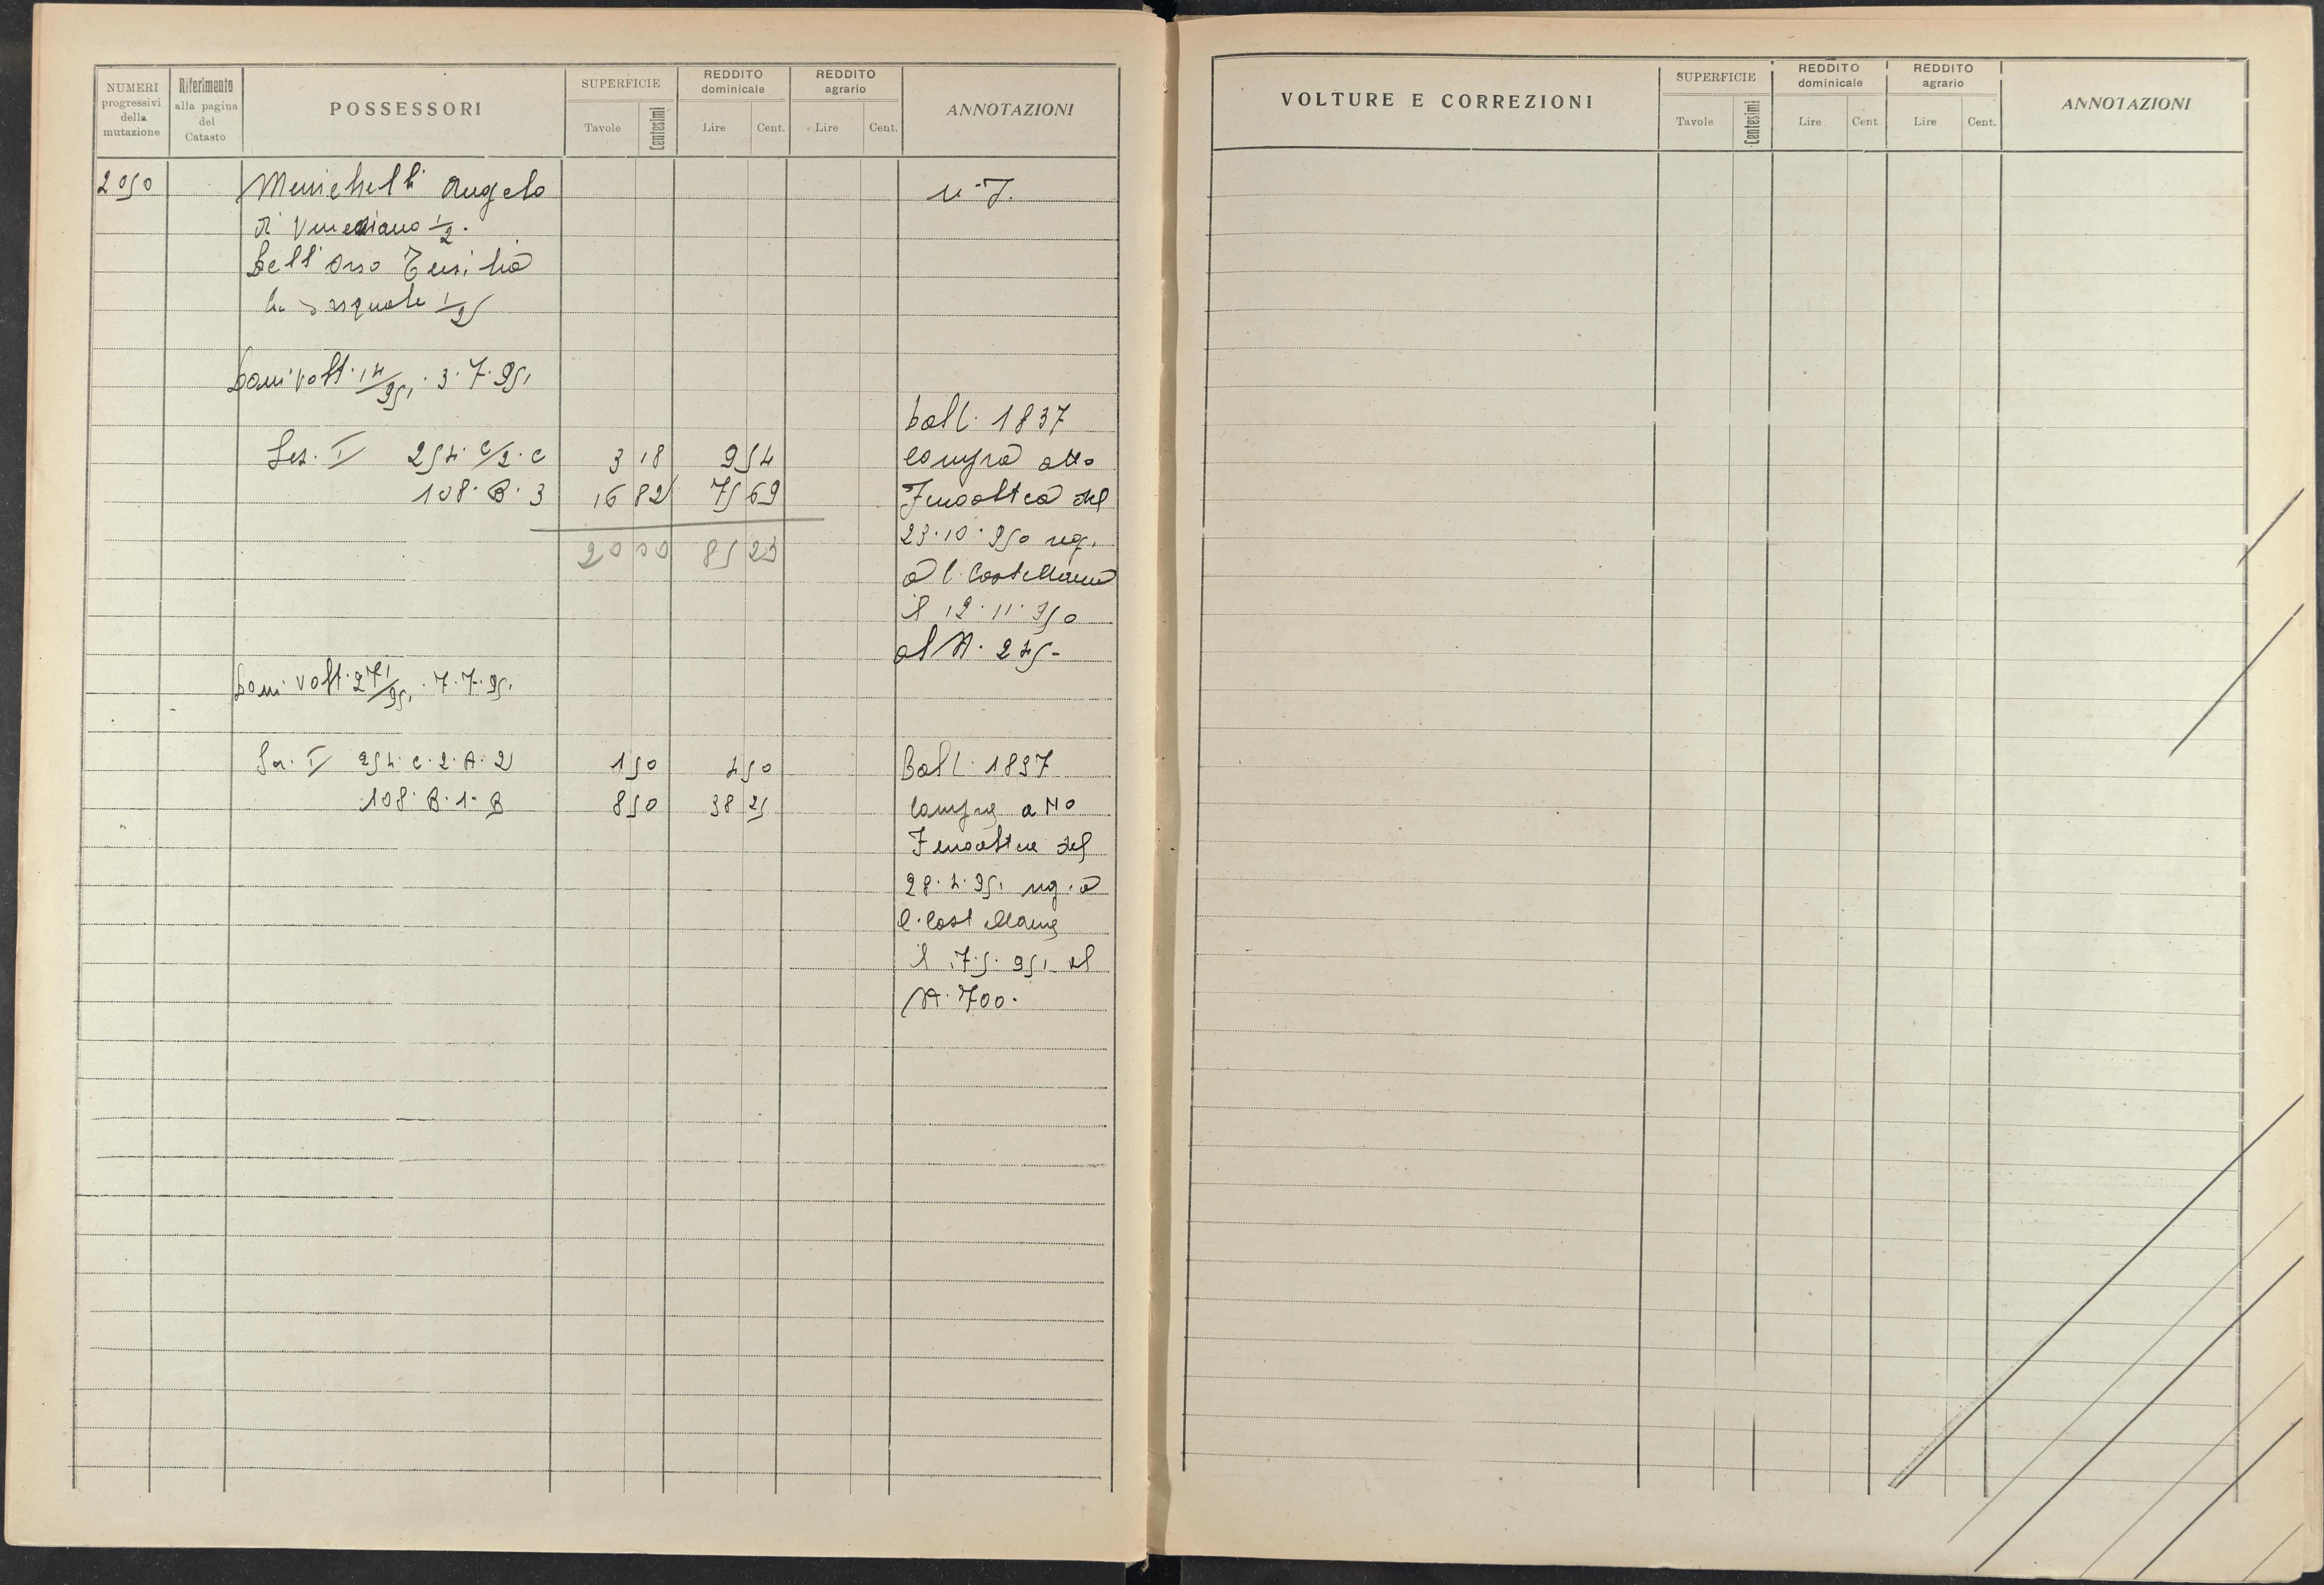 NUMERI progressivi della mutazione
Riferimento alla pagina del Catasto
POSSESSORI
SUPERFICIE
Tavole
Centesimi
REDDITO dominicale
Lire
Cent.
REDDITO agrario
Lire
Cent.
ANNOTAZIONI
2050
Menichelli Angelo
di 1/2.
Dell'Orso Ersilia
fu Pasquale 1/2
volt. 14/951. 3.7.951
Sez. I 254. C/2. C 3 18 9 54
108. B. 3 16 82 75 69
20 00 85 23
1837
compra atto
Fenoaltea del
23.10.950 reg.
a C. Castellana
il 12.11.950
al N. 245-
volt. 271/951. 7.7.951
Sez. I 254. C. 2. A. 2 1 50 4 50
108. B. 1. B 8 50 38 25
1837
compra atto
Fenoaltea del
28.4.951 reg. a
C. Castellana
il 17.5.951 al
N. 700.
VOLTURE E CORREZIONI
SUPERFICIE
Tavole
Centesimi
REDDITO dominicale
Lire
Cent.
REDDITO agrario
Lire
Cent.
ANNOTAZIONI